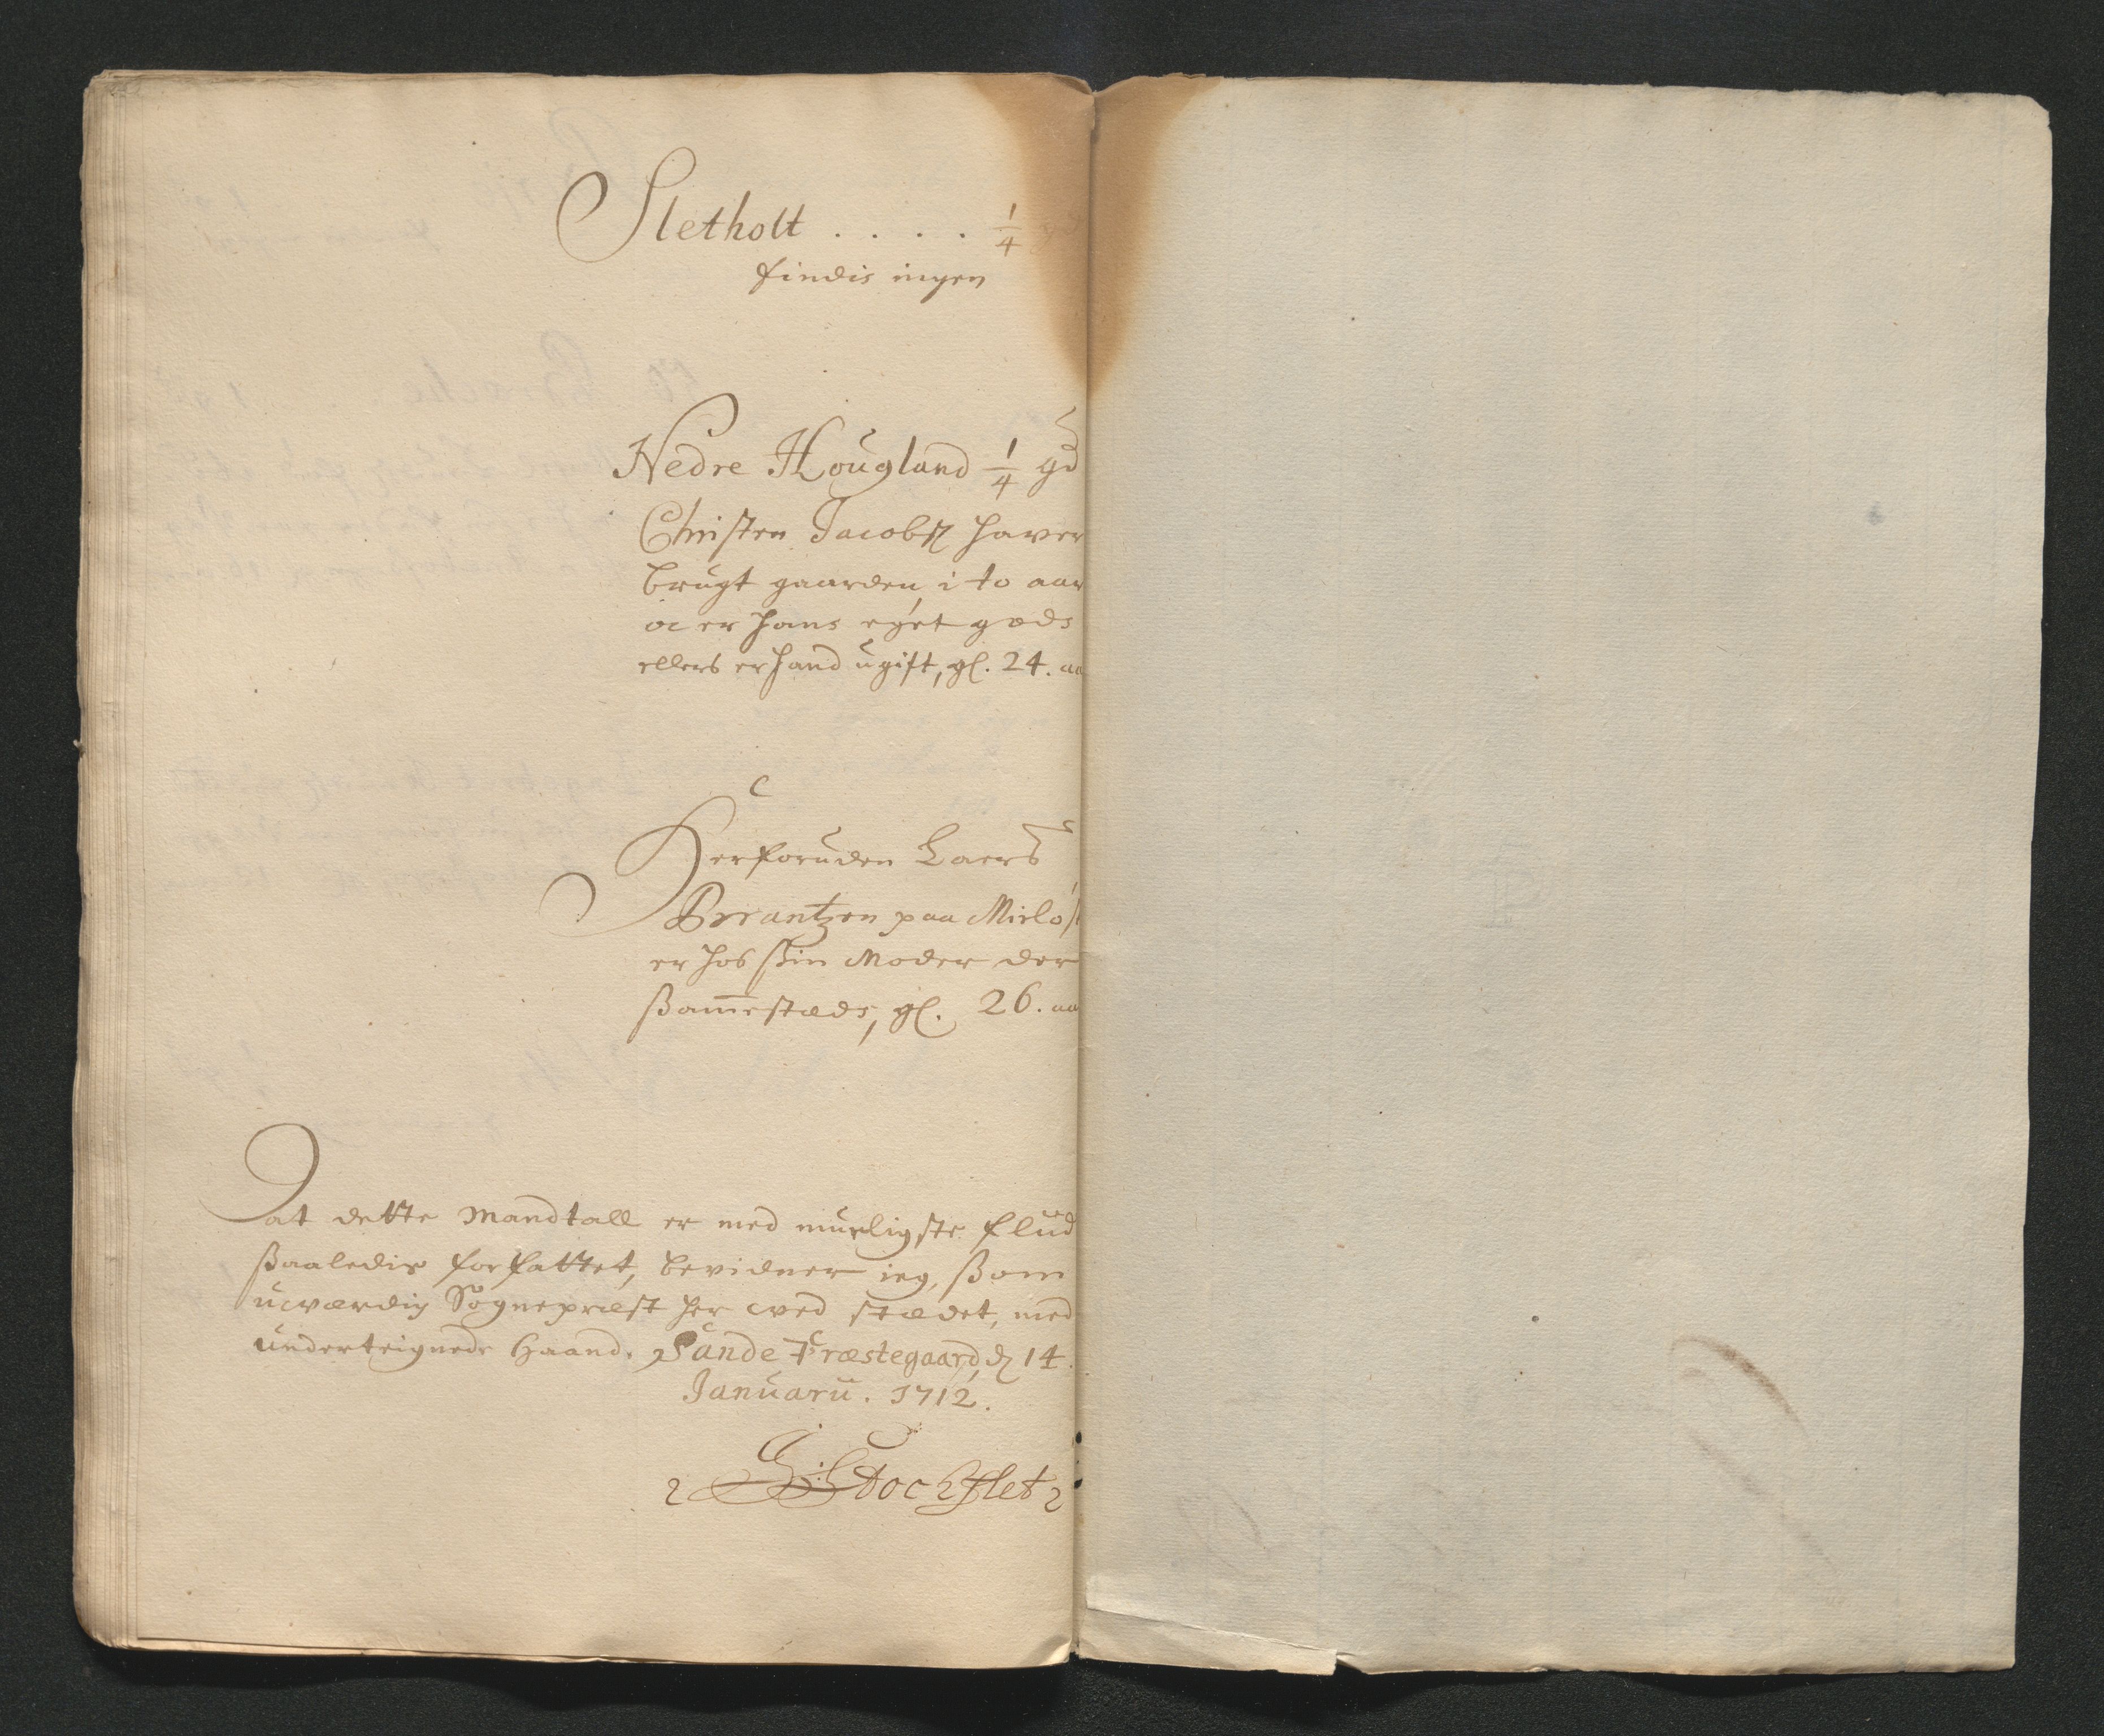 Sletholt . . . . 1/4 gd
findis ingen
Nedre Hougland 1/4 gd
Christen Jacobs haver
brugt gaarden i to aar
oc er hans eget gods
ellers er hand ugift, gl. 24. aa
Herforuden Laers
Brrantzen paa Mirlös
er hos ßin Moder der
ßam̄estæds, gl. 26. aa
At dette Mandtall er med mueligste fliid
ßaaledis forfattet, bevidner ieg, ßom
uværdig Sognepræst her ved stædet, med
underteignede Haand. Sande Præstegaard, d 14.
Januarii. 1712.
Stochflet